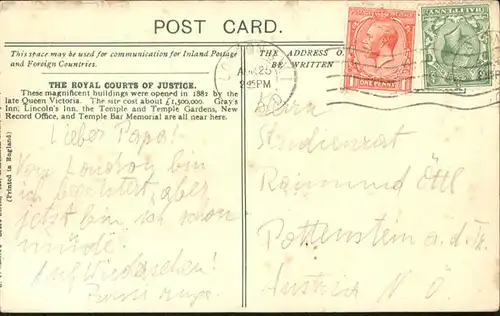 POST CARD.
This space may be used for communication for Inland Postage
and Foreign Countries.
THE ADDRESS O
BE WRITTEN
THE ROYAL COURTS OF JUSTICE.
These magnificent buildings were opened in 1882 by the
late Queen Victoria. The site cost about £1,500,000. Gray's
Inn; Lincoln's Inn, the Temple and Temple Gardens, New
Record Office, and Temple Bar Memorial are all near here.
(Printed in England)
Lieber Papa!
Von London bin
ich begeistert, aber
jetzt bin ich schon
müde.
Auf Wiedersehen!
ONE PENNY
HALFPENNY
25
PM
Herrn
Studienrat
Raimund Öttl
Pottenstein a. d. Tr.
Austria N. Ö.